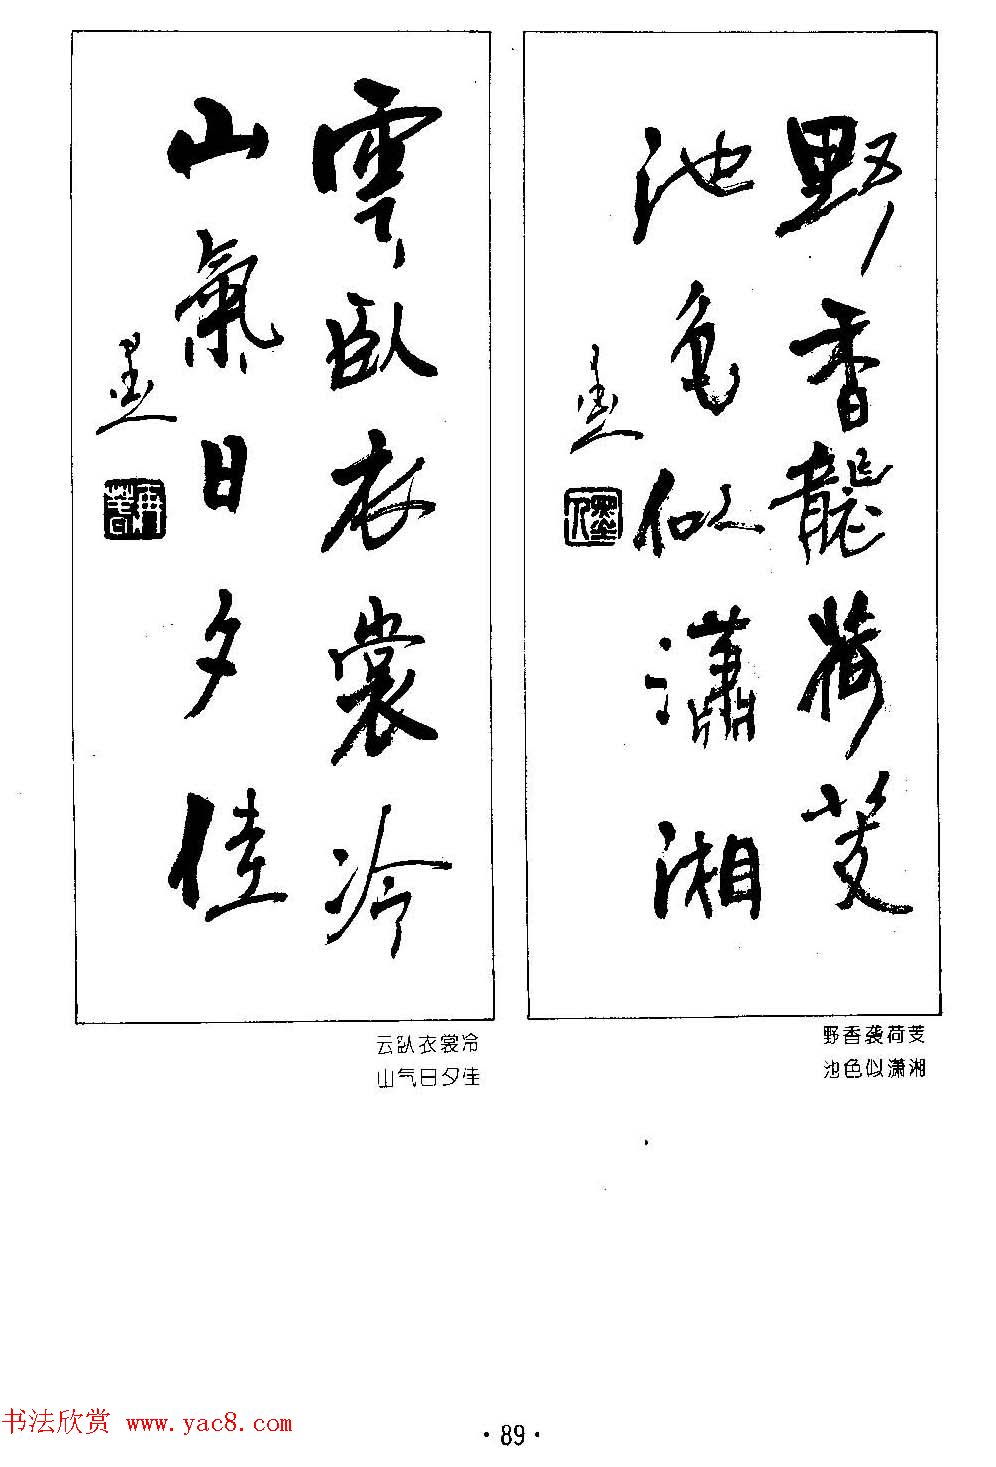 野香龍荷芰
池色似瀟湘
墨
墨人
雲臥衣裳冷
山氣日夕佳
墨
野香袭荷芰
池色似潇湘
云卧衣裳冷
山气日夕佳
书法欣赏 www.yac8.com
·89·